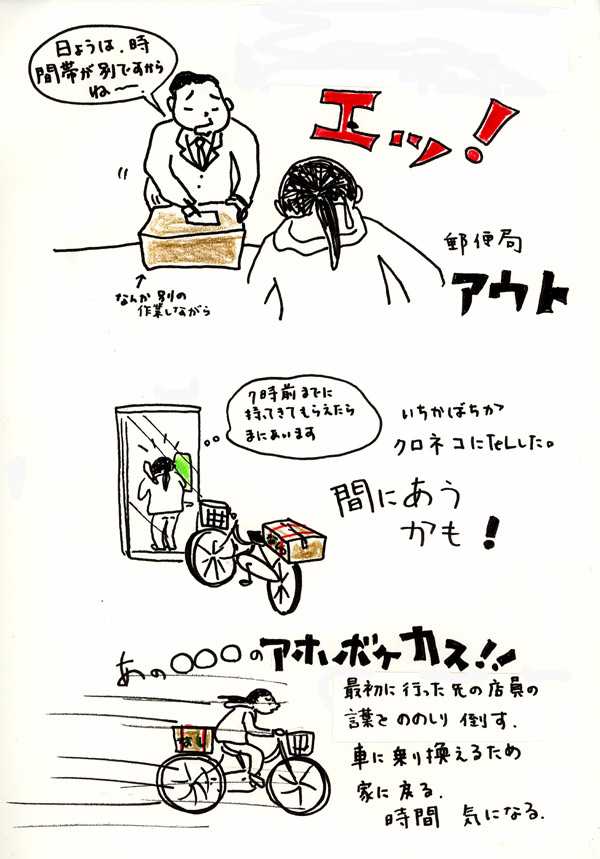 日ようは、時
間帯が別ですから
ね〜
エッ!
郵便局
アウト
なんか別の
作業しながら
7時前までに
持ってきてもらえたら
まにあいます
いちかばちか
クロネコにTeLした。
間にあう
かも!
あの○○○のアホボケカス!!
最初に行った先の店員の
言葉をののしり倒す.
車に乗り換えるため
家に戻る.
時間 気になる.